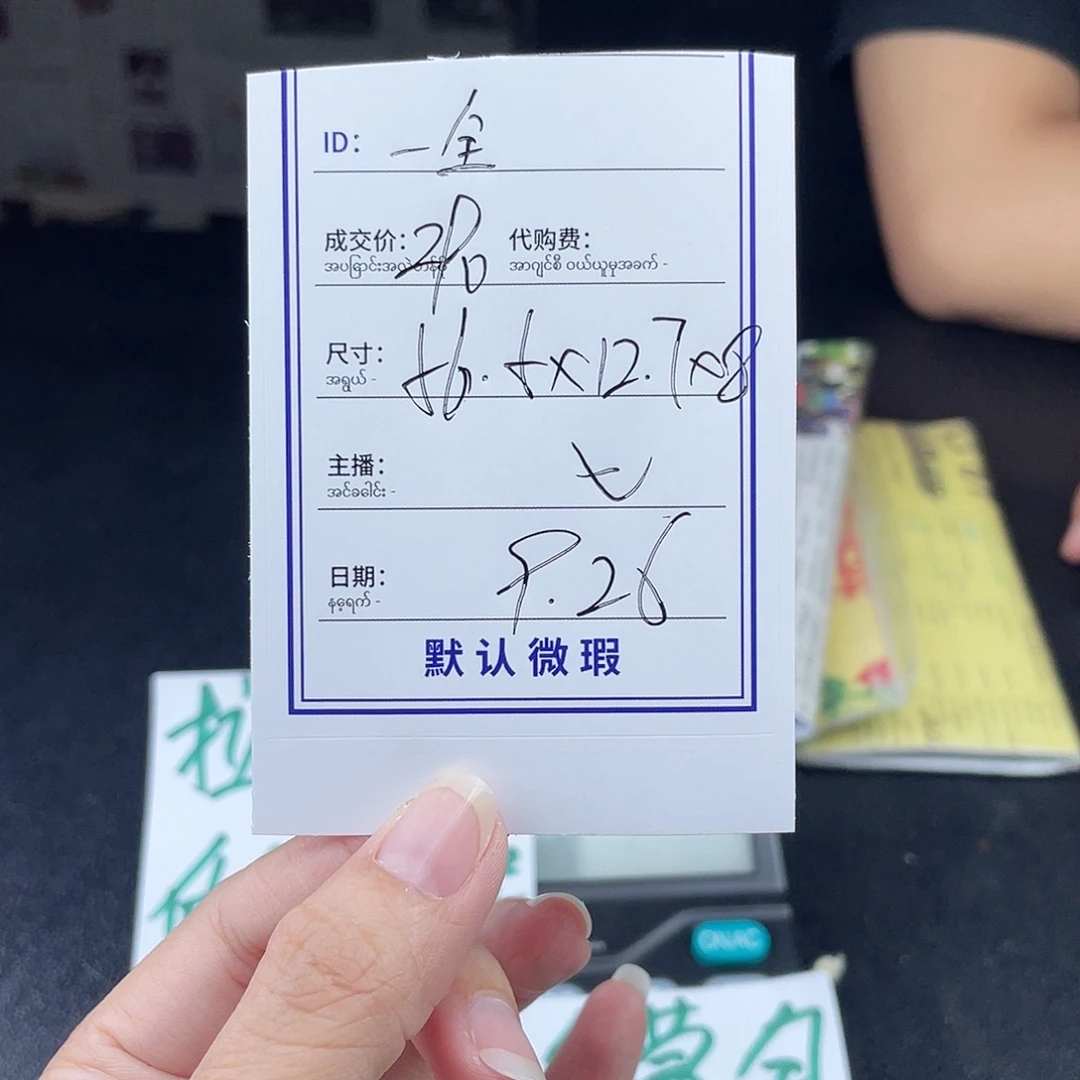 ID: 一全
成交价: 290 代购费:
အပြောင်းအလဲတန်ဖိုး အာဂျင်စီ ဝယ်ယူမှုအခက် -
尺寸: 56.5x12.7x8
အရွယ် -
主播: 七
အင်ခခေါင်း -
日期: 9.26
နေ့ရက် -
默认微瑕
ON/AC